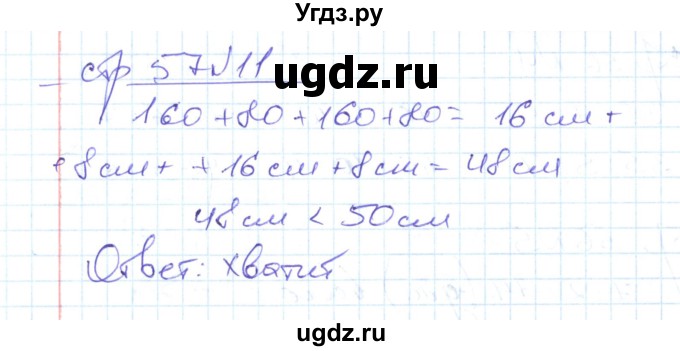 Угдз.ру
стр 57 №11
ugdz.ru
160 + 80 + 160 + 80 = 16 см +
+ 8 см + + 16 см + 8 см = 48 см
48 см < 50 см
Ответ: хватит
ugdz.ru